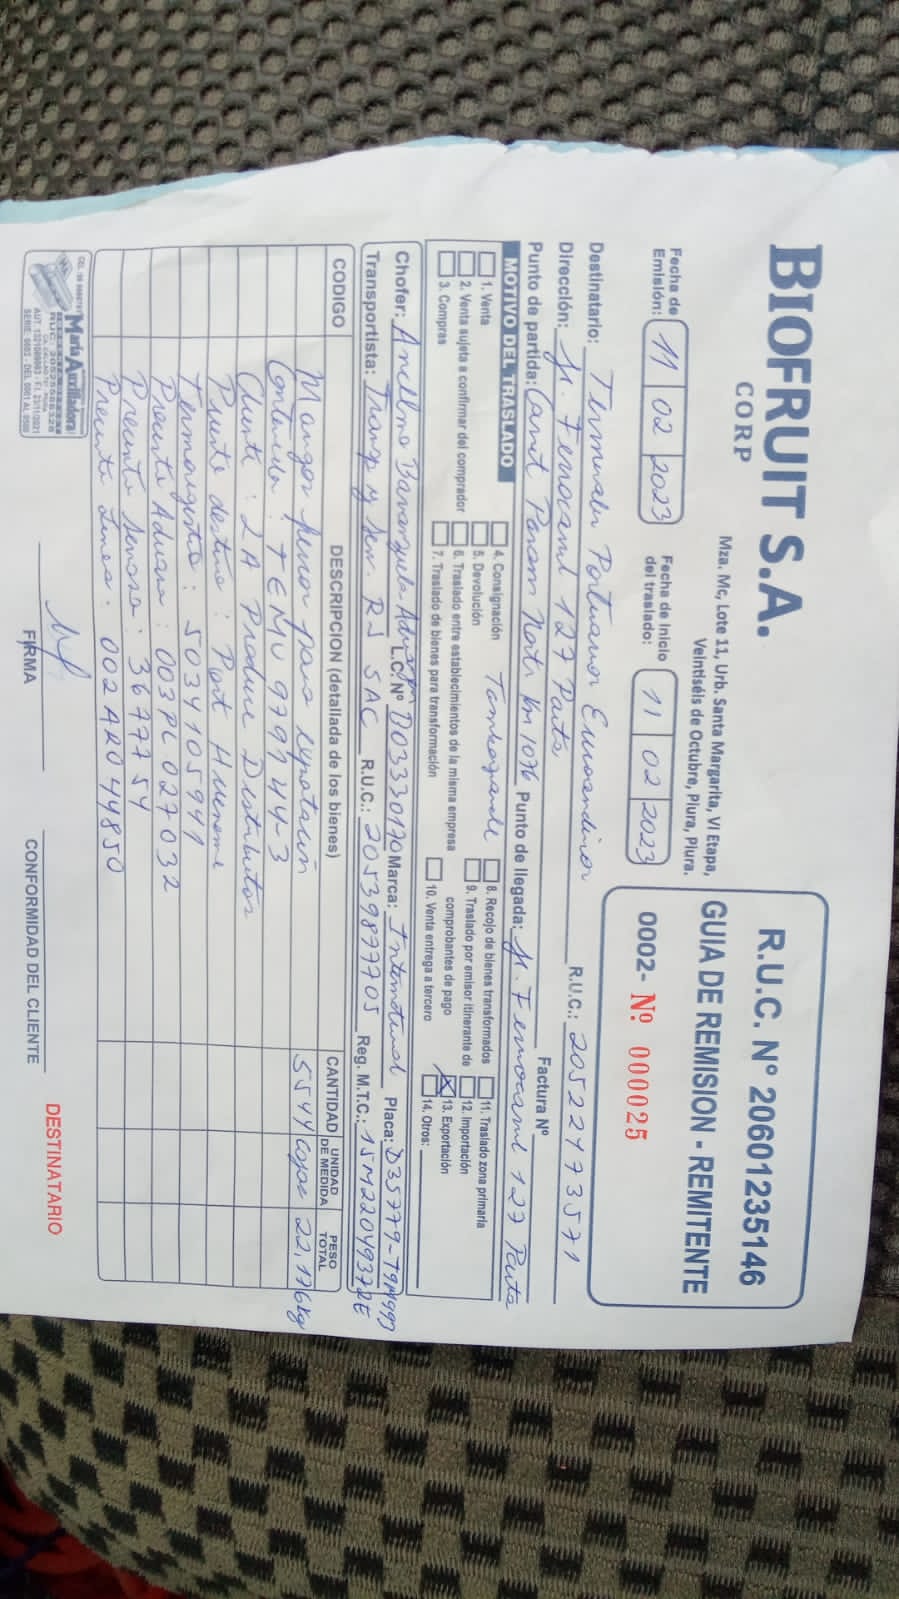 BIOFRUIT S.A.
CORP
Mza. Mc, Lote 11, Urb. Santa Margarita, VI Etapa,
Veintiséis de Octubre, Piura, Piura.
R.U.C. Nº 20601235146
GUIA DE REMISION - REMITENTE
0002- Nº 000025
Fecha de Emisión: 11 02 2023
Fecha de Inicio del traslado: 11 02 2023
Destinatario: Terminales Portuarios Euroandinos R.U.C.: 20522473571
Dirección: Jr. Ferrocarril 127 Paita Factura Nº
Punto de partida: Carret Panam Norte Km 1076 Tambogrande Punto de llegada: Jr. Ferrocarril 127 Paita
MOTIVO DEL TRASLADO
1. Venta
2. Venta sujeta a confirmar del comprador
3. Compras
4. Consignación
5. Devolución
6. Traslado entre establecimientos de la misma empresa
7. Traslado de bienes para transformación
8. Recojo de bienes transformados
9. Traslado por emisor itinerante de comprobantes de pago
10. Venta entrega a tercero
11. Traslado zona primaria
12. Importación
X 13. Exportación
14. Otros:
Chofer: Anselmo L.C. Nº D03330170 Marca: International Placa:
Transportista: Transp y Serv. RJ SAC R.U.C.: 20539877705 Reg. M.T.C.:
CODIGO DESCRIPCION (detallada de los bienes) CANTIDAD UNIDAD DE MEDIDA PESO TOTAL
Mangos frescos para exportación 5544 cajas 22,176 kg
Contenedor: TEMU 979944-3
Cliente: LA Produce Distributor
Puerto destino: Port Hueneme
Termoregistro: 5034105941
Precinto Aduana: 003PL027032
Precinto Senasa: 3677754
Precinto Linea: 002ARO44850
María Auxiliadora
FIRMA
CONFORMIDAD DEL CLIENTE
DESTINATARIO